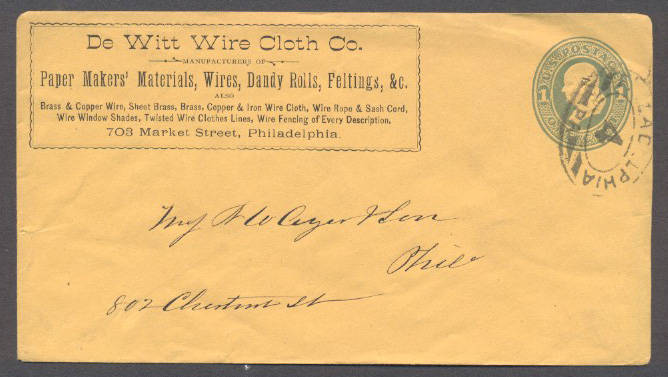 De Witt Wire Cloth Co.
MANUFACTURERS OF
Paper Makers' Materials, Wires, Dandy Rolls, Feltings, &c.
ALSO
Brass & Copper Wire, Sheet Brass, Brass, Copper & Iron Wire Cloth, Wire Rope & Sash Cord,
Wire Window Shades, Twisted Wire Clothes Lines, Wire Fencing of Every Description.
703 Market Street, Philadelphia.
U.S. POSTAGE
1
& Son
Phila
802 Chestnut St